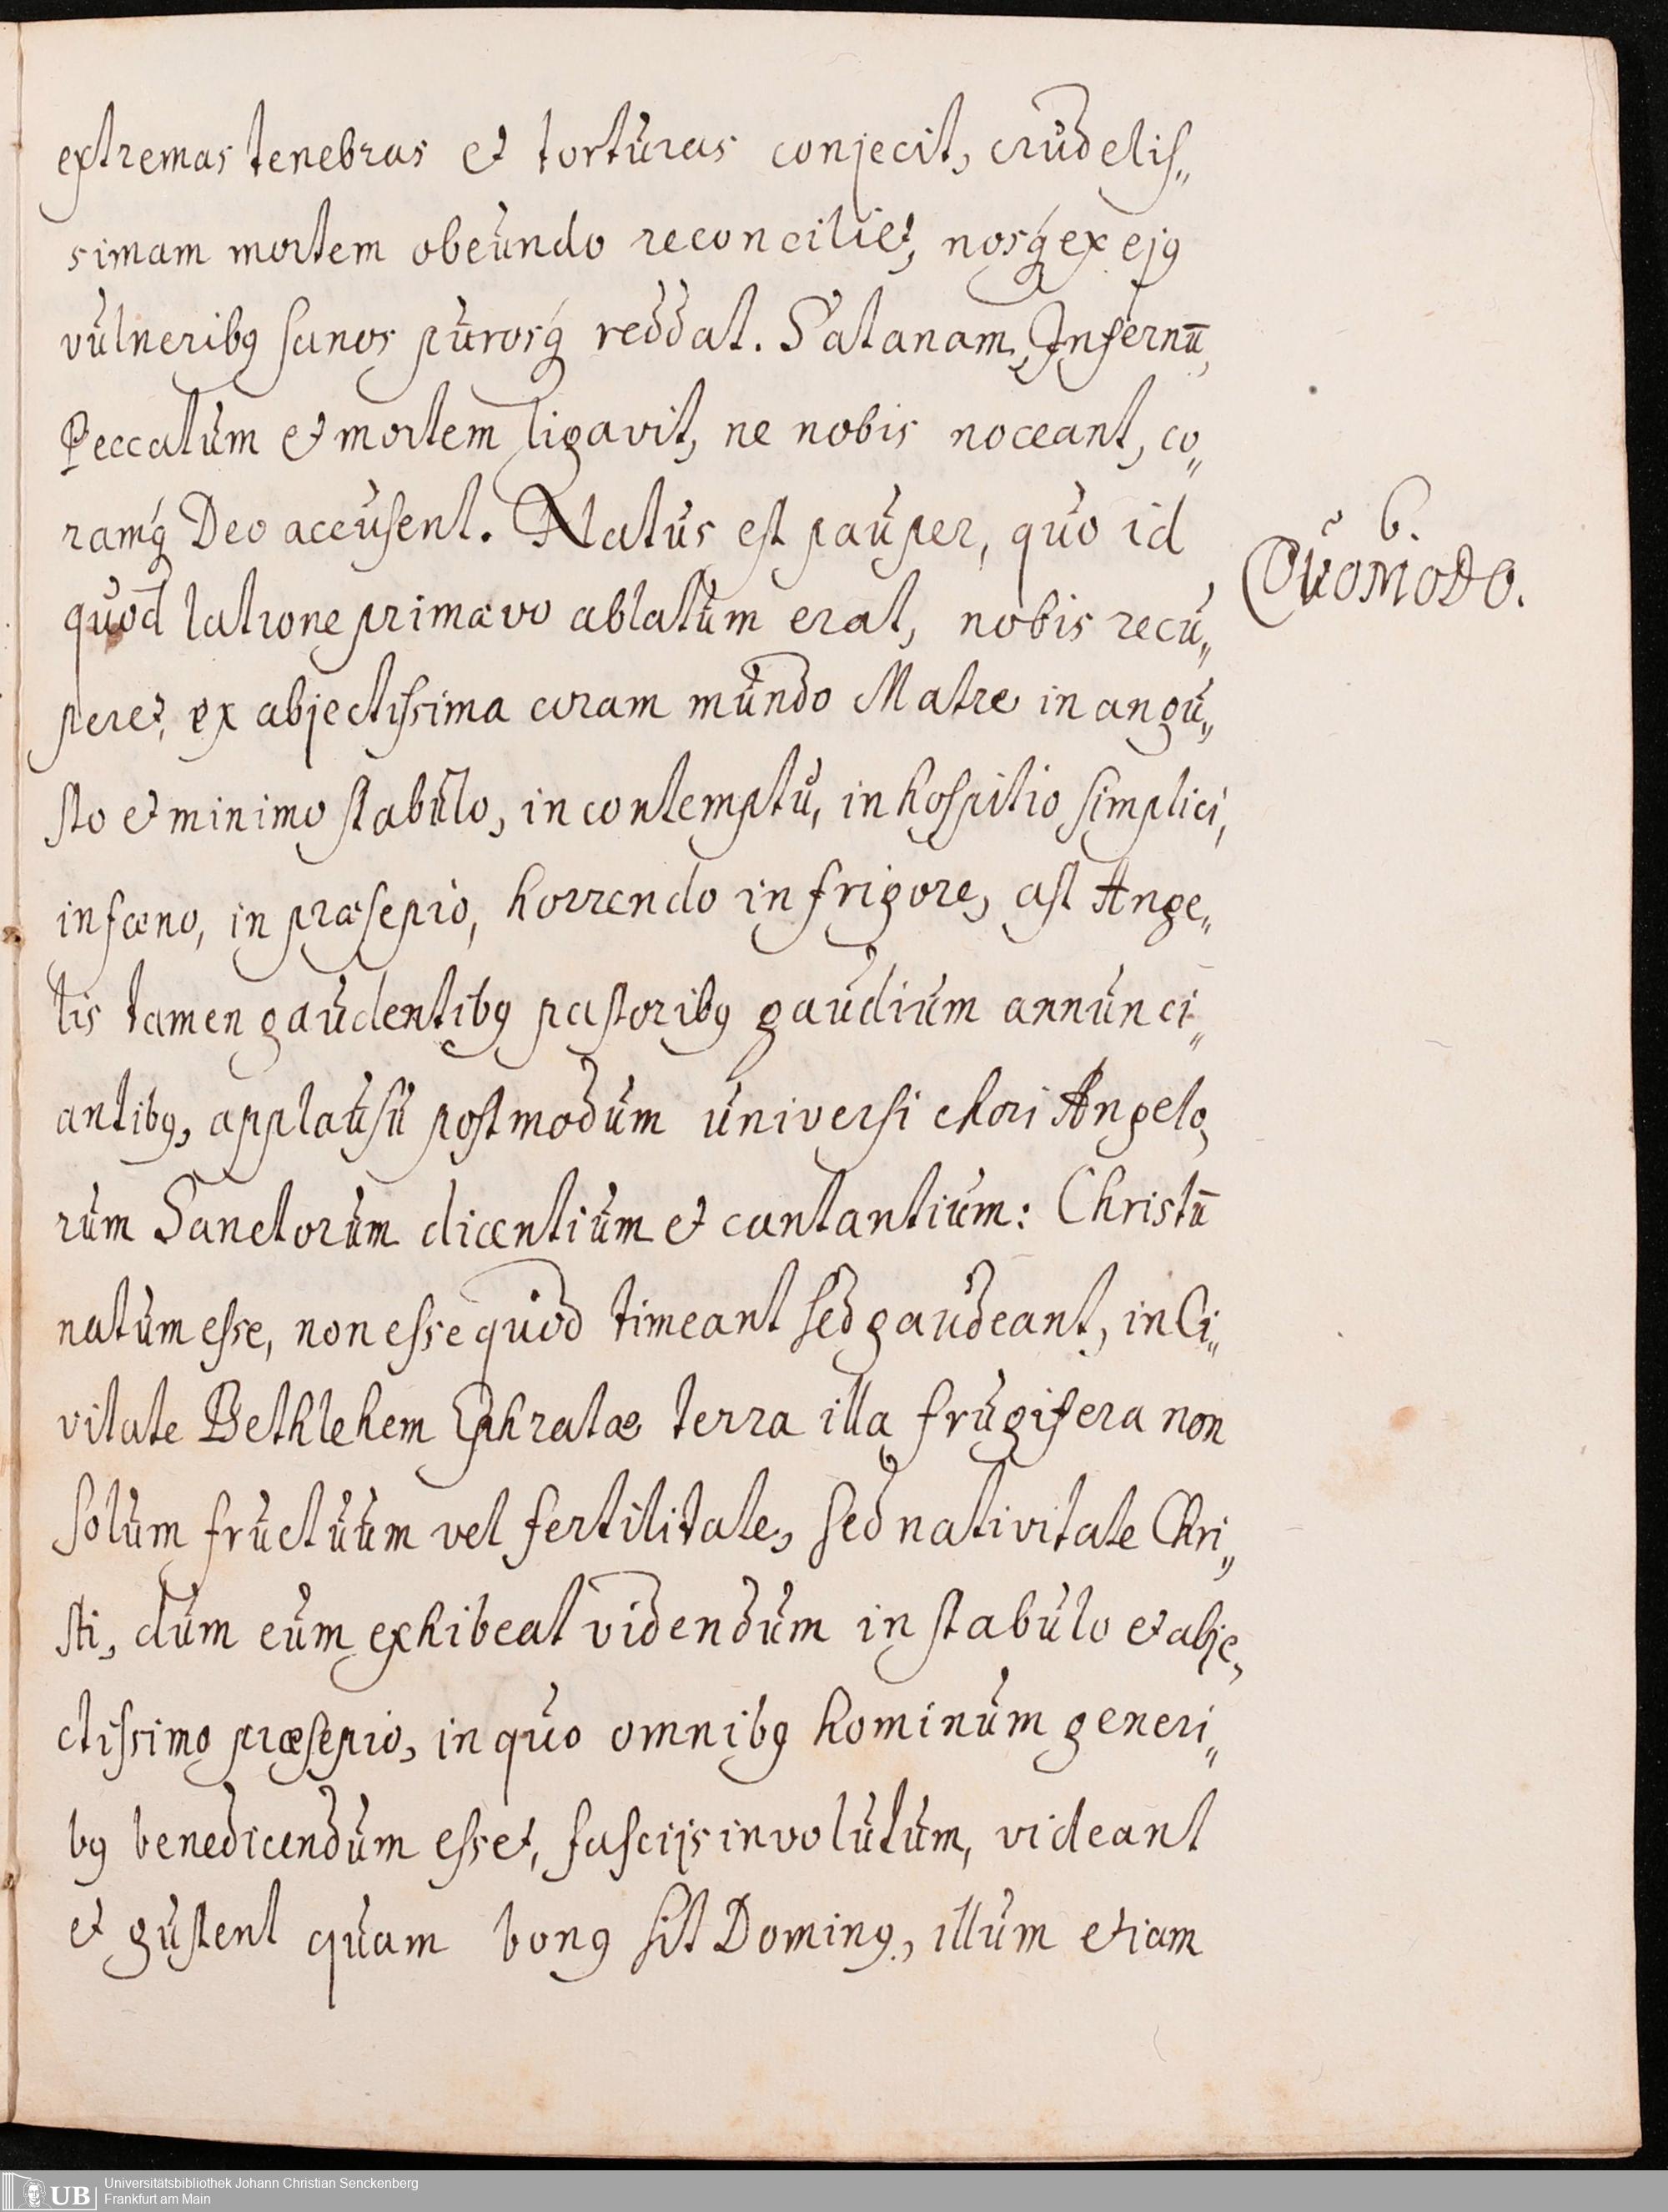 extremas tenebras et torturas conjecit, crudelis„
simam mortem obeundo reconciliet, nosq́ ex ejꝰ
vulneribꝰ sanos purosq́ reddat. Satanam, Infernū,
Peccatum et mortem ligavit, ne nobis noceant, co„
ramq́ Deo accusent. Natus est pauper, quo id
6.
Quomodo.
quod latrone primævo ablatum erat, nobis recu„
peret, ex abjectissima coram mundo Matre in angu„
sto et minimo stabulo, in contemptu, in hospitio simplici,
in fœno, in præsepio, horrendo in frigore, ast Ange„
lis tamen gaudentibꝰ pastoribꝰ gaudium annunci„
antibꝰ, applausu postmodum universi chori Angelo„
rum Sanctorum dicentium et cantantium: Christū
natum esse, non esse quod timeant sed gaudeant, in Ci„
vitate Bethlehem Ephratæ terra illa frugifera non
solum fructuum vel fertilitate, sed nativitate Chri„
sti, dum eum exhibeat videndum in stabulo et abje„
ctissimo præsepio, in quo omnibꝰ hominum generi„
bꝰ benedicendum esset, fasciis involutum, videant
et gustent quam bonꝰ sit Dominꝰ, illum etiam
UB Universitätsbibliothek Johann Christian Senckenberg
Frankfurt am Main